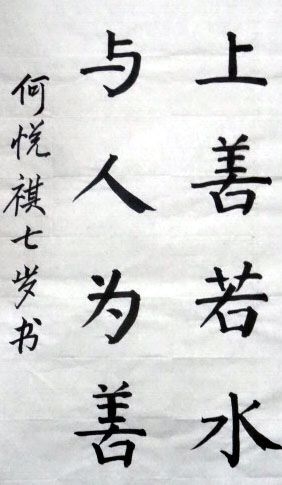 上善若水
与人为善
何悦祺七岁书